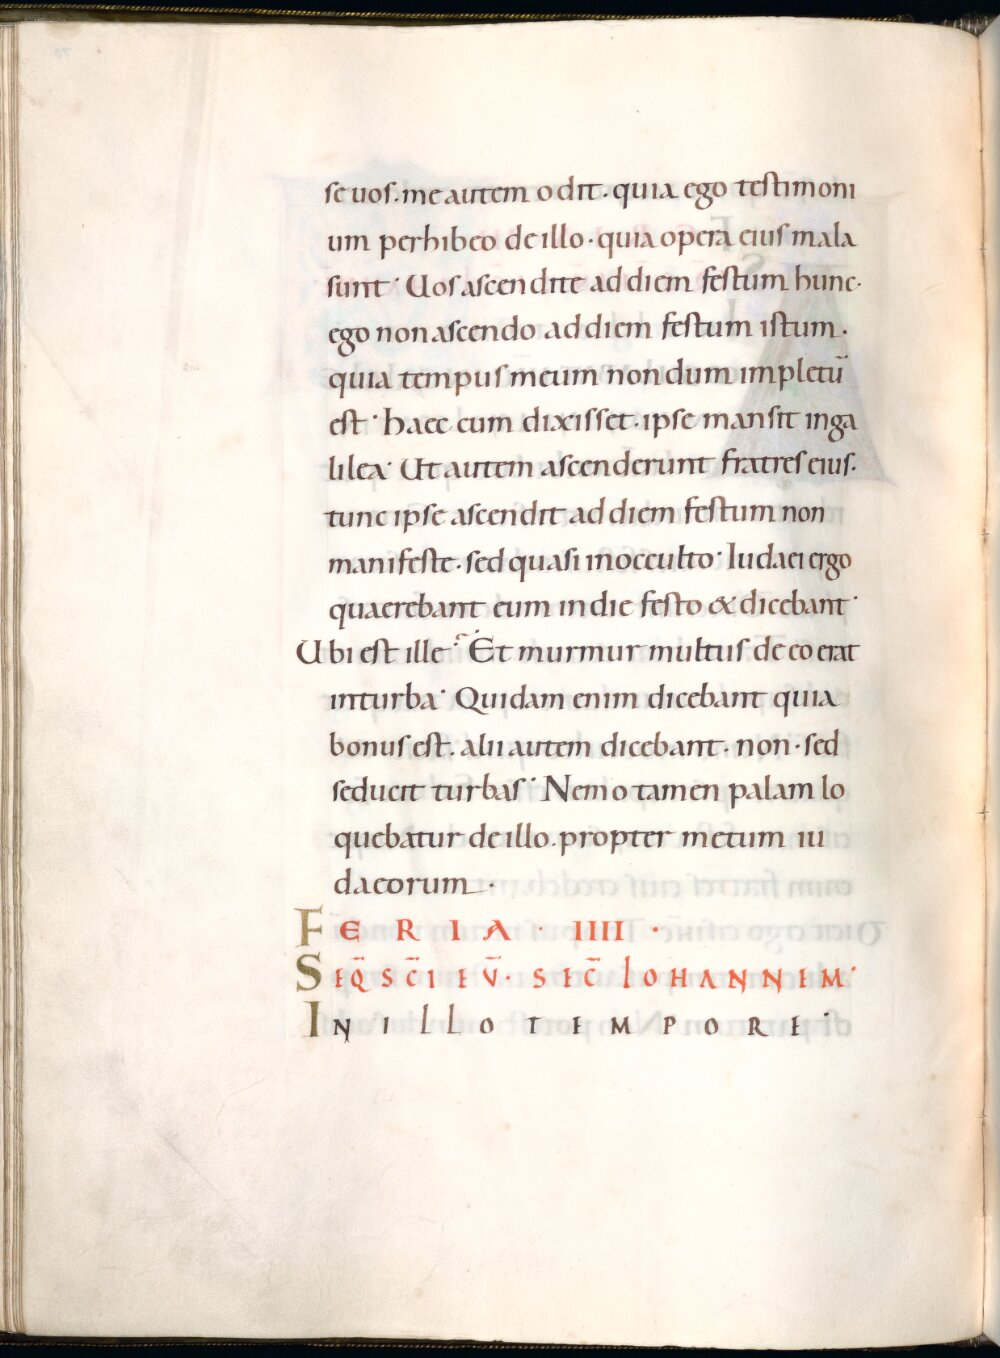 se uos. me autem odit. quia ego testimoni
um perhibeo de illo. quia opera eius mala
sunt. Uos ascendite ad diem festum hunc.
ego non ascendo ad diem festum istum.
quia tempus meum nondum impletū
est. haec cum dixisset. ipse mansit in ga
lilea. Ut autem ascenderunt fratres eius.
tunc ipse ascendit ad diem festum non
manifeste. sed quasi in occulto. Iudaei ergo
quaerebant eum in die festo & dicebant.
Ubi est ille? Et murmur multus de eo erat
in turba. Quidam enim dicebant quia
bonus est. alii autem dicebant. non. sed
seducit turbas. Nemo tamen palam lo
quebatur de illo. propter metum iu
daeorum.
FERIA · IIII ·
SEQ̄ SC̄I EŪ. SEC̄ IOHANNEM.
IN ILLO TEMPORE.